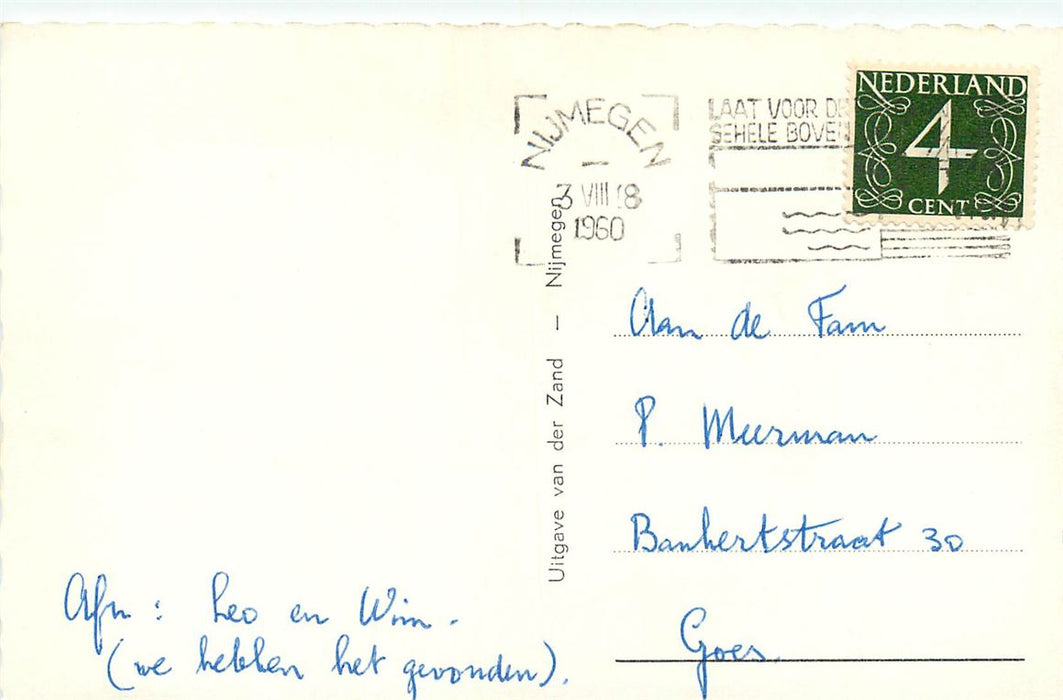 NIJMEGEN
3 VIII 18
1960
LAAT VOOR DE
GEHELE BOVEN
NEDERLAND
4
CENT
Uitgave van der Zand — Nijmegen
Aan de Fam
P. Meerman
Bankertstraat 30
Goes.
Afn: Leo en Wim.
(we hebben het gevonden).